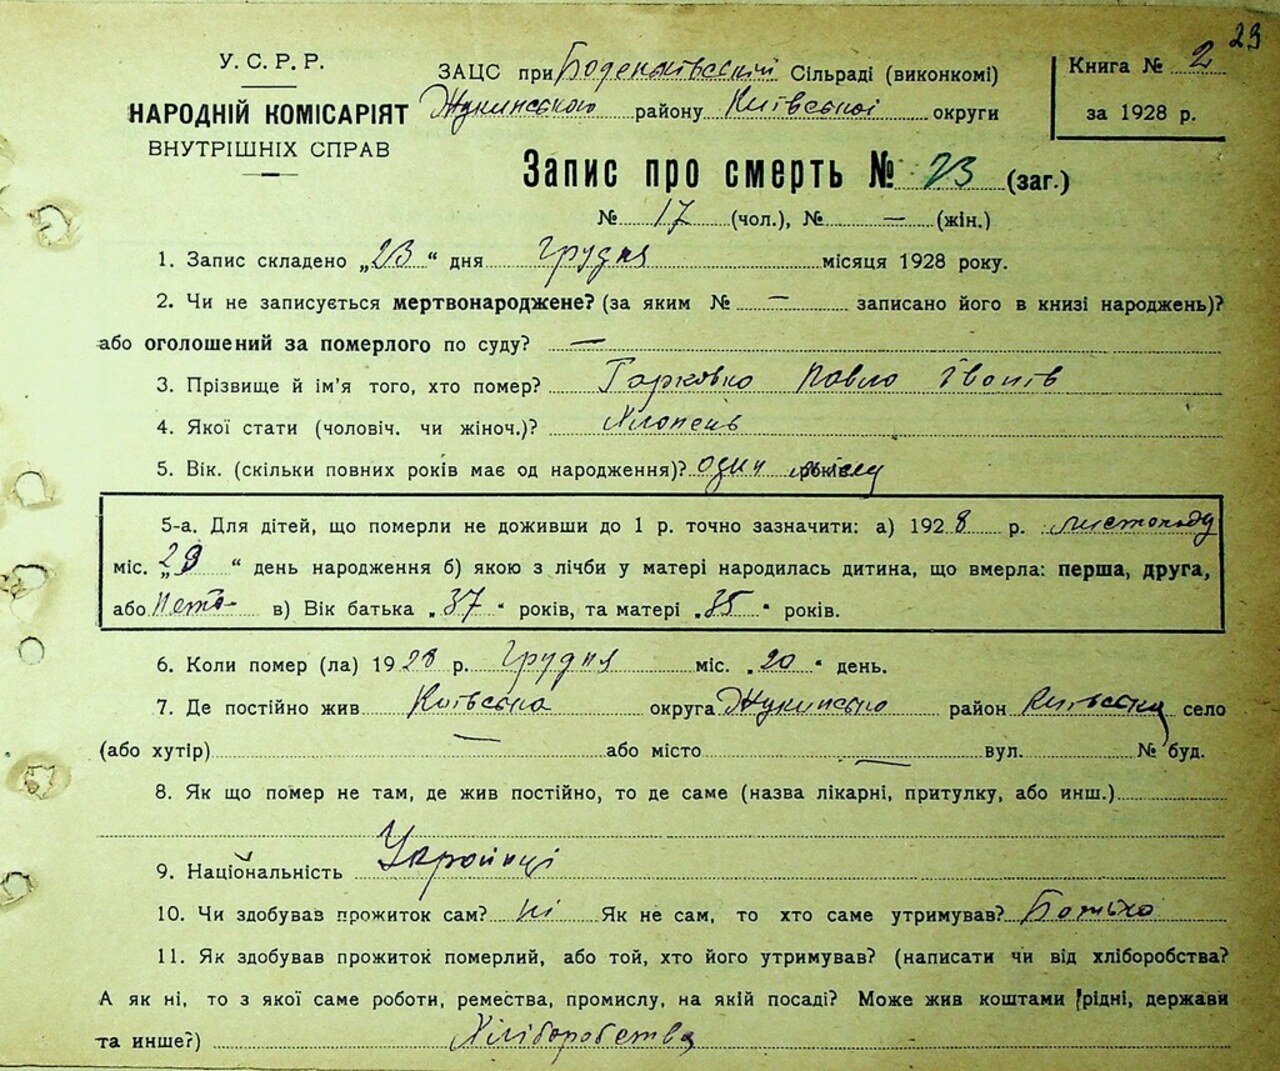 23
У. С. Р. Р.
НАРОДНІЙ КОМІСАРІЯТ
ВНУТРІШНІХ СПРАВ
ЗАЦС при Боденьківській Сільраді (виконкомі)
Жукинського району Київської округи
Книга № 2
за 1928 р.
Запис про смерть № 23 (заг.)
№ 17 (чол.), № — (жін.)
1. Запис складено „23“ дня Грудня місяця 1928 року.
2. Чи не записується мертвонароджене? (за яким № — записано його в книзі народжень)?
або оголошений за померлого по суду? —
3. Прізвище й ім'я того, хто помер? Гарковко Павло Іванів
4. Якої стати (чоловіч. чи жіноч.)? Хлопець
5. Вік. (скільки повних років має од народження)? один
5-а. Для дітей, що померли не доживши до 1 р. точно зазначити: а) 1928 р. листопаду
міс. „29“ день народження б) якою з лічби у матері народилась дитина, що вмерла: перша, друга,
або пята в) Вік батька „37“ років, та матері „35“ років.
6. Коли помер (ла) 1928 р. Грудня міс. „20“ день.
7. Де постійно жив Київська округа Жукинсько район село
(або хутір) — або місто — вул. № буд.
8. Як що помер не там, де жив постійно, то де саме (назва лікарні, притулку, або инш.)
9. Національність Украйнці
10. Чи здобував прожиток сам? ні Як не сам, то хто саме утримував? Батько
11. Як здобував прожиток померлий, або той, хто його утримував? (написати чи від хліборобства?
А як ні, то з якої саме роботи, ремества, промислу, на якій посаді? Може жив коштами рідні, держави
та инше?) Хліборобства